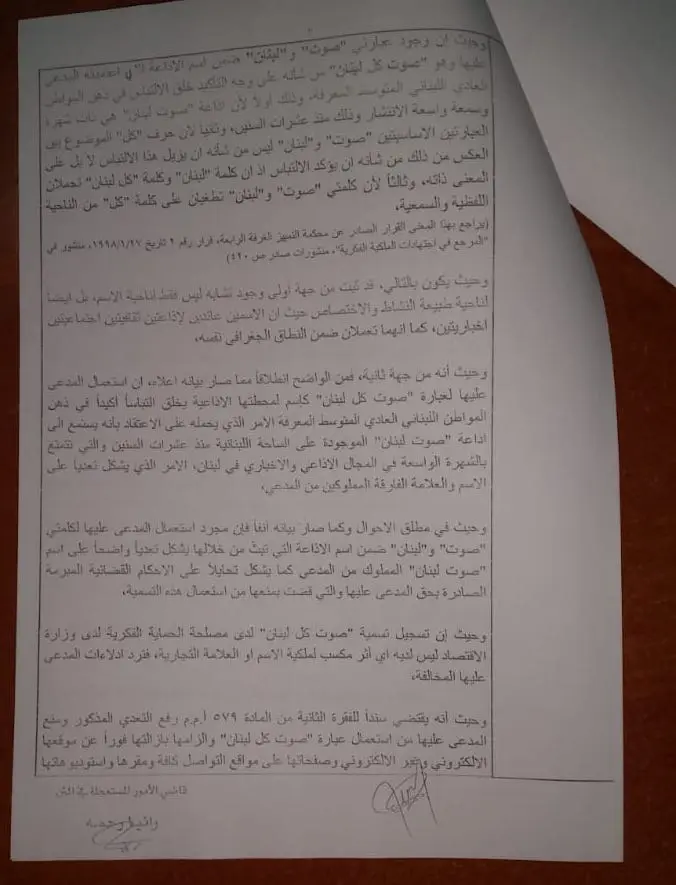 وحيث إن وجود عبارتي "صوت" و"لبنان" ضمن اسم الاذاعة التي اعتمدته المدعى
عليها وهو "صوت كل لبنان" من شأنه على وجه التأكيد خلق الالتباس في ذهن المواطن
العادي اللبناني المتوسط المعرفة، وذلك اولاً لأن اذاعة "صوت لبنان" هي ذات شهرة
وسمعة واسعة الانتشار وذلك منذ عشرات السنين، وثانياً لأن حرف "كل" الموضوع بين
العبارتين الاساسيتين "صوت" و"لبنان" ليس من شأنه ان يزيل هذا الالتباس لا بل على
العكس من ذلك من شأنه ان يؤكد الالتباس اذ ان كلمة "لبنان" وكلمة "كل لبنان" تحملان
المعنى ذاته، وثالثاً لأن كلمتي "صوت" و"لبنان" تطغيان على كلمة "كل" من الناحية
اللفظية والسمعية،
(يراجع بهذا المعنى القرار الصادر عن محكمة التمييز الغرفة الرابعة، قرار رقم ٢ تاريخ ١٩٩٨/١/٢٧، منشور في
"المرجع في اجتهادات الملكية الفكرية"، منشورات صادر ص ٤٢٠)
وحيث يكون بالتالي، قد ثبت من جهة اولى وجود تشابه ليس فقط لناحية الاسم، بل ايضاً
لناحية طبيعة النشاط والاختصاص حيث ان الاسمين عائدين لإذاعتين تثقيفيتين اجتماعيتين
اخباريتين، كما انهما تعملان ضمن النطاق الجغرافي نفسه،
وحيث أنه من جهة ثانية، فمن الواضح انطلاقاً مما صار بيانه اعلاه، ان استعمال المدعى
عليها لعبارة "صوت كل لبنان" كإسم لمحطتها الاذاعية يخلق التباساً أكيداً في ذهن
المواطن اللبناني العادي المتوسط المعرفة الامر الذي يحمله على الاعتقاد بأنه يستمع الى
اذاعة "صوت لبنان" الموجودة على الساحة اللبنانية منذ عشرات السنين والتي تتمتع
بالشهرة الواسعة في المجال الاذاعي والاخباري في لبنان، الامر الذي يشكل تعدياً على
الاسم والعلامة الفارقة المملوكين من المدعي،
وحيث في مطلق الاحوال وكما صار بيانه آنفاً فإن مجرد استعمال المدعى عليها لكلمتي
"صوت" و"لبنان" ضمن اسم الاذاعة التي تبث من خلالها يشكل تعدياً واضحاً على اسم
"صوت لبنان" المملوك من المدعي كما يشكل تحايلاً على الاحكام القضائية المبرمة
الصادرة بحق المدعى عليها والتي قضت بمنعها من استعمال هذه التسمية،
وحيث إن تسجيل تسمية "صوت كل لبنان" لدى مصلحة الحماية الفكرية لدى وزارة
الاقتصاد ليس لديه اي أثر مكسب لملكية الاسم او العلامة التجارية، فترد ادلاءات المدعى
عليها المخالفة،
وحيث أنه يقتضي سنداً للفقرة الثانية من المادة ٥٧٩ أ.م.م رفع التعدي المذكور ومنع
المدعى عليها من استعمال عبارة "صوت كل لبنان" والزامها بازالتها فوراً عن موقعها
الالكتروني وغير الالكتروني وصفحاتها على مواقع التواصل كافة ومقرها واستوديوهاتها
قاضي الأمور المستعجلة في المتن